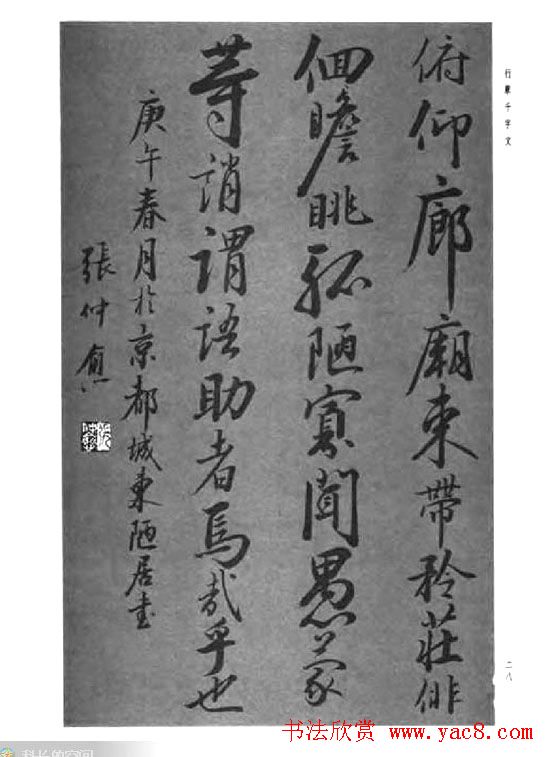 俯仰廊廟束帶矜莊俳
佪瞻眺孤陋寡聞愚蒙
等誚謂語助者焉哉乎也
庚午春月於京都城東陋居書
張仲愈
行草千字文
二八
书法欣赏
www.yac8.com
科长的空间